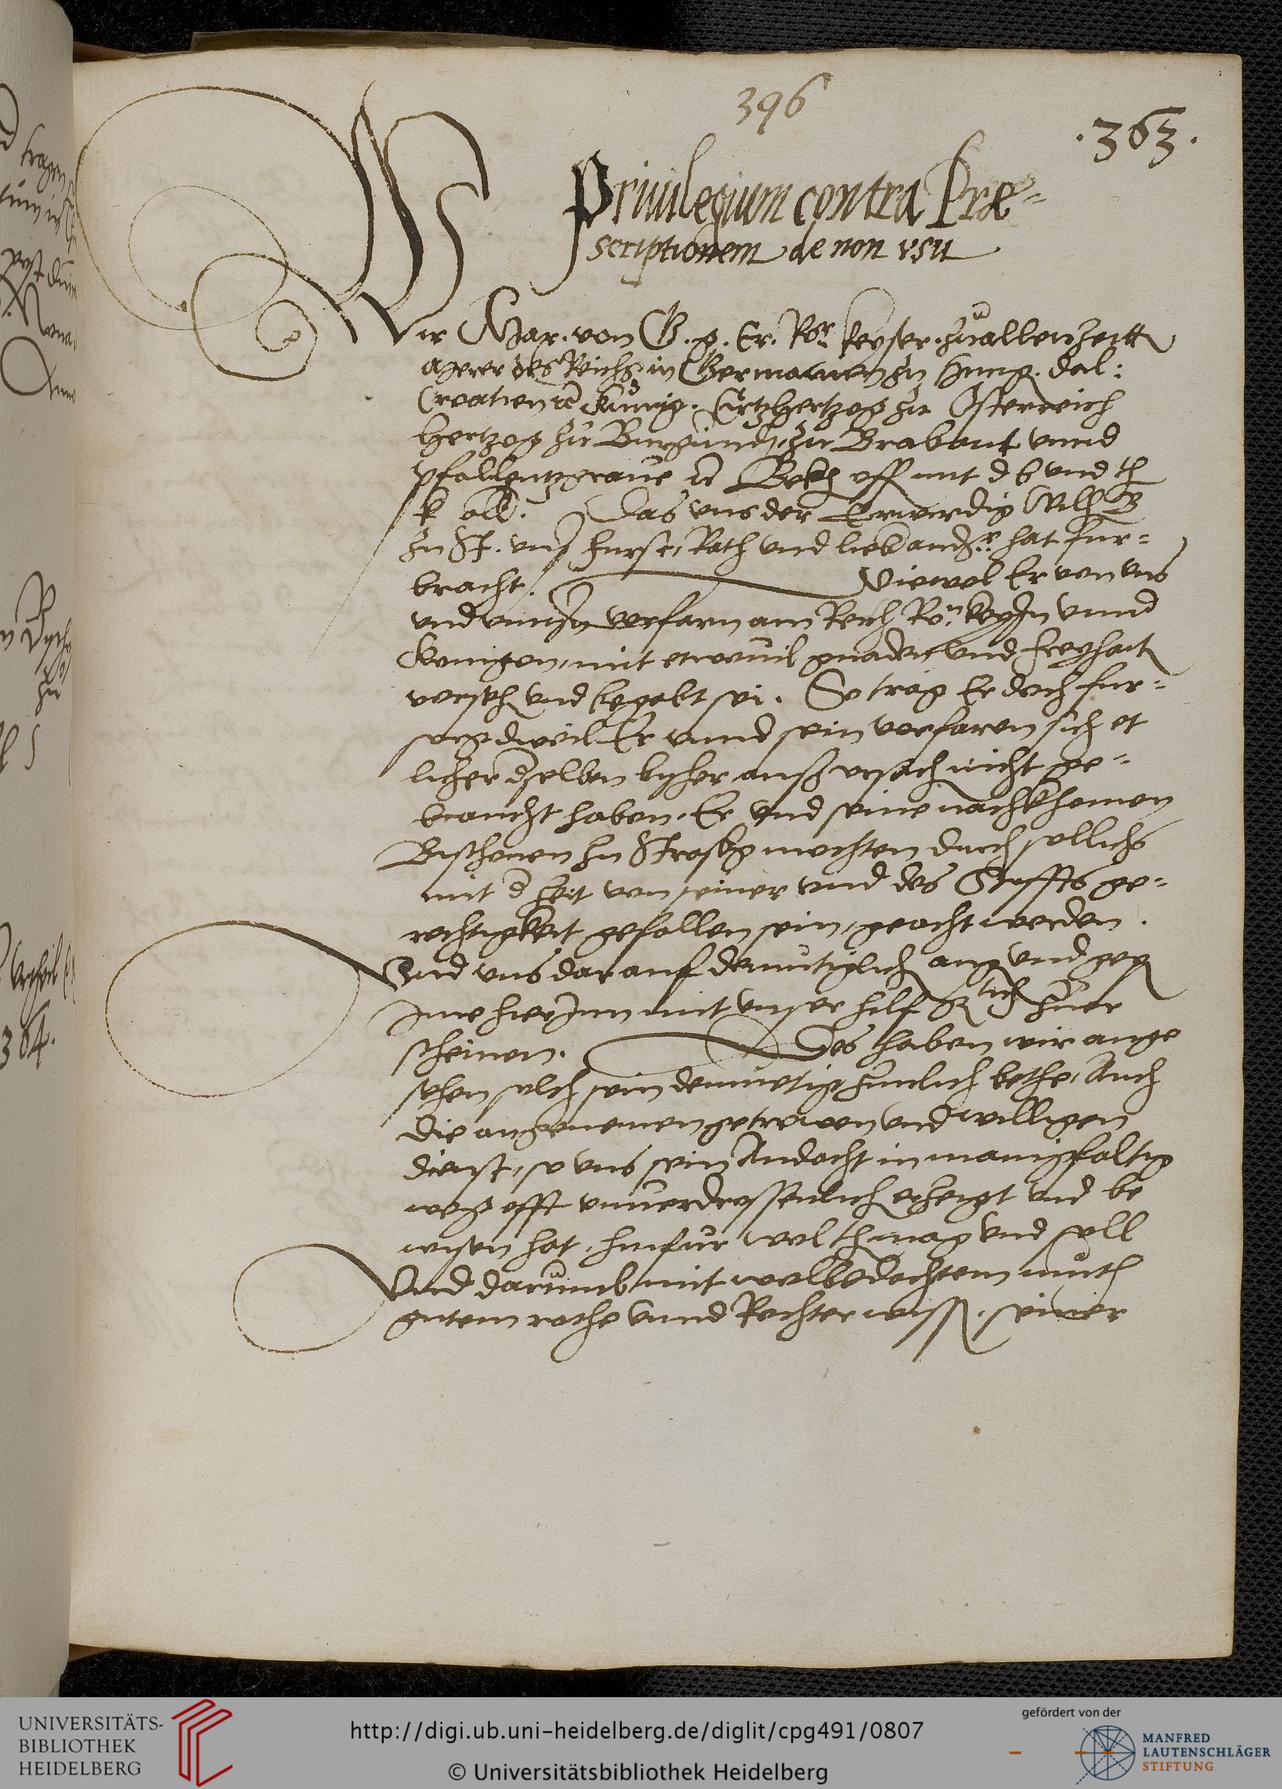 396
.363.
Priuilegium contra Præ-
scriptionem de non vsu
Wir Max. von G. g. Er. Ro. keyser. zuallen zeitt
merer des Reichs in Germanien zu Hung. dal:
Croatien kunig. Ertzhertzog zu Osterreich
hertzog zu Burgundj, zu Brabant vnnd
pfallentzgraue Bekh off mit d b vnd th
k all. Das vns der Erwirdig Wilh B
zu St. vns furst, Rath vnd lieb hat fur-
bracht. Wiewol Er von vns
vnd vnnsn vorfarn am Reich Ro. keysn vnnd
konigen, mit etwouil gnaden vnd freyhait
vorseh vnd begabt sei. So trag Er doch fur-
sorg dweil Er vnnd sein vorfaren sich et
licher dselben bisher auß vrsach nicht ge-
braucht haben. Er vnd seine nachkhomen
Bischouen zu Strasbg mochten durch sollichs
mit d zeit von seiner vnd des Stiffts ge-
rechtigkeit gefallen sein, geacht werden.
Vnd vns darauf demutiglich ang vnd geg
Ime hierJnn mit vnser hilf
scheinen. Des haben wir ange
sehen solch sein demuetig zimlich bethe, Auch
die angenemen getrewen vnd willigen
dienst, so vns sein Andacht in manigfaltig
weg offt vnuerdrossenlich erzeigt vnd be
wisen hat, hinfur wol th mag vnd soll
Vnd darumb mit wolbedachtem muth
gutem rathe vnnd Rechter wiss. seiner
UNIVERSITÄTS-
BIBLIOTHEK
HEIDELBERG
http://digi.ub.uni-heidelberg.de/diglit/cpg491/0807
© Universitätsbibliothek Heidelberg
gefördert von der
MANFRED
LAUTENSCHLÄGER
STIFTUNG